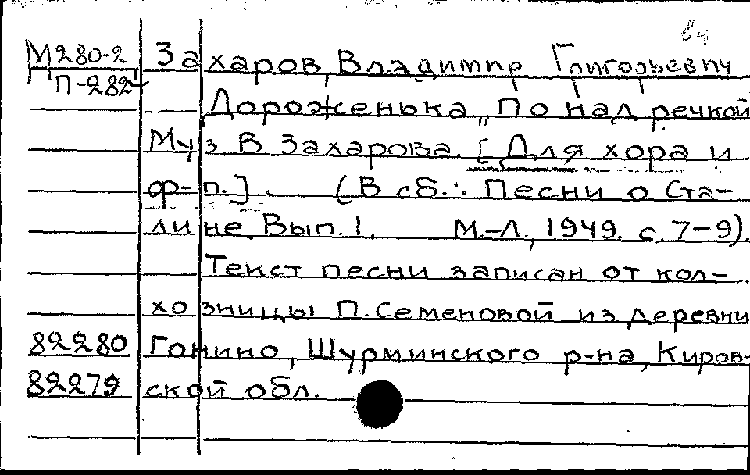 М280-2 Захаров, Владимир Григорьевич
П-282
Дороженька „По над речкой
Муз В Захарова. [Для хора и
ф-п.]. (В сб.: Песни о Ста-
лине. Вып. 1. М.-Л., 1949. с. 7-9).
Текст песни записан от кол-
хозницы П. Семеновой из деревни
82280 Гонино, Шурминского р-на, Киров-
82279 ской обл.